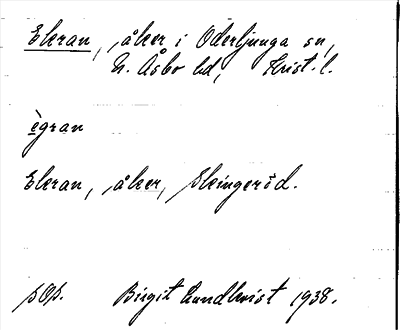 Ekran, åker i Oderljunga sn,
N. Åsbo hd, Krist. l.
ègran
Ekran, åker, Skingeröd.
pOp. Birgit Lundkvist 1938.